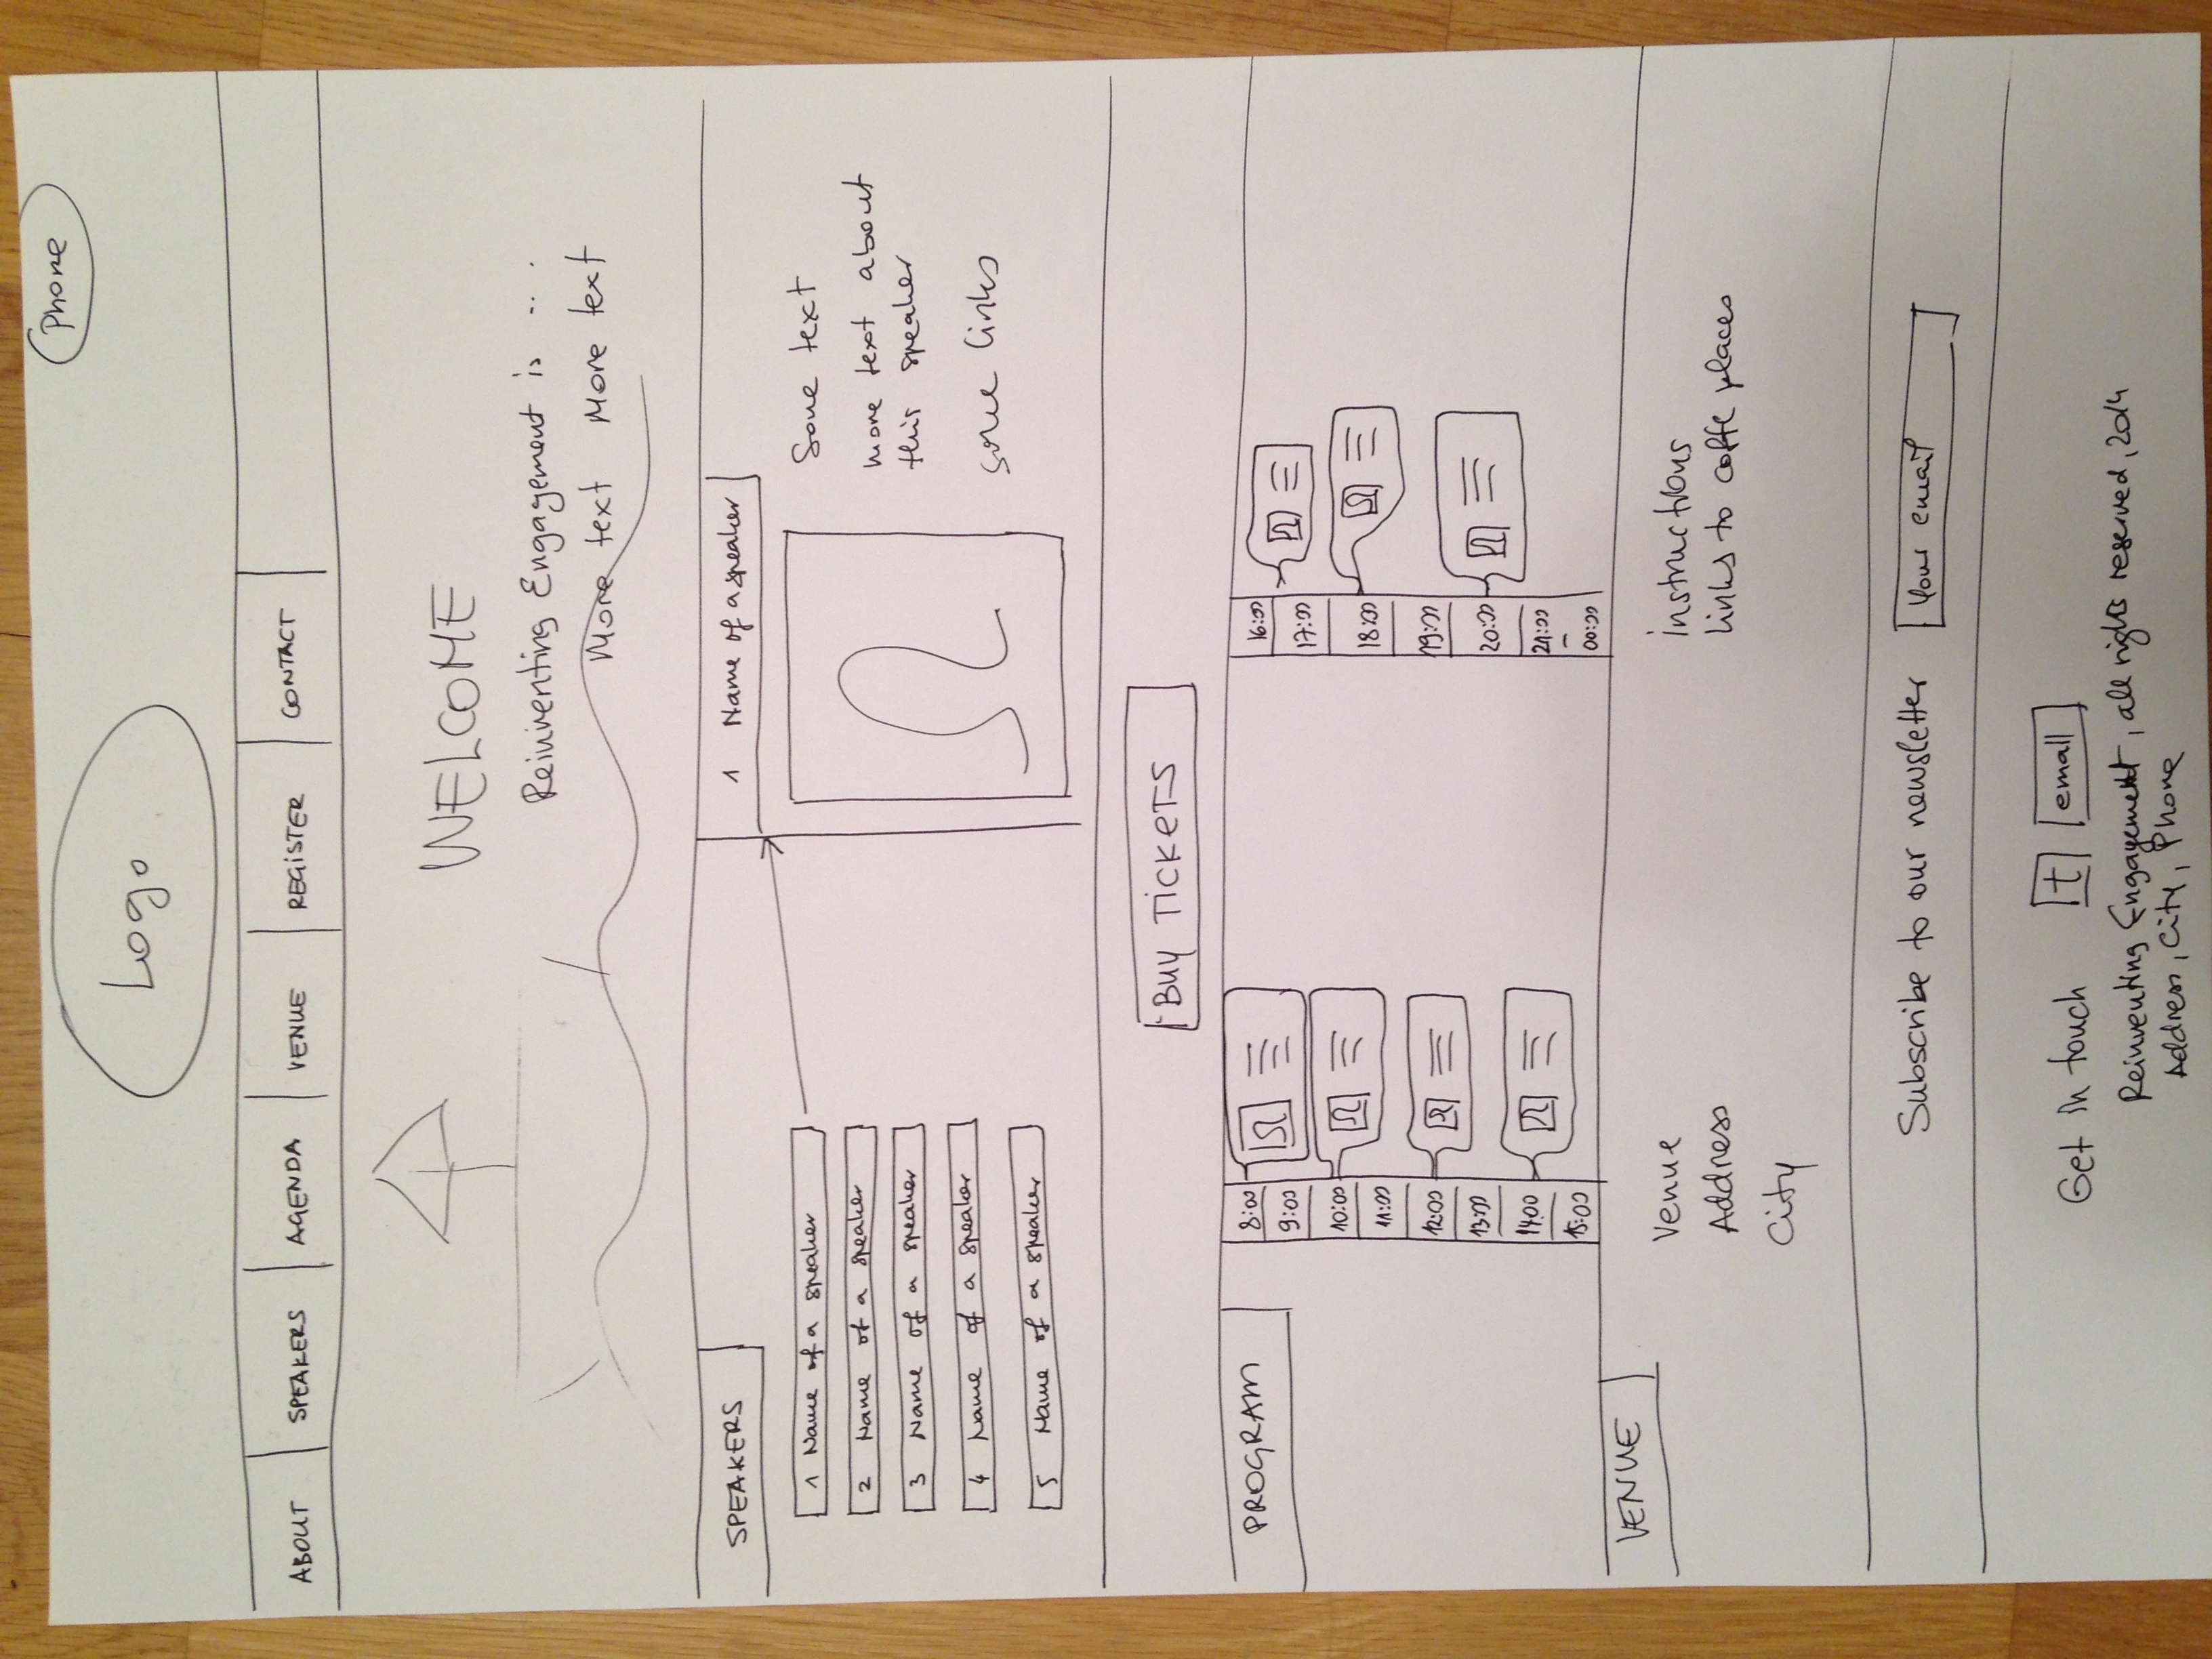 Phone
Logo
ABOUT SPEAKERS AGENDA VENUE REGISTER CONTACT
WELCOME
Reinventing Engagement is ...
More text More text
SPEAKERS
1 Name of a speaker
2 Name of a speaker
3 Name of a speaker
4 Name of a speaker
5 Name of a speaker
1 Name of a speaker
Some text
more text about
this speaker
some links
BUY TICKETS
PROGRAM
8:00
9:00
10:00
11:00
12:00
13:00
14:00
15:00
16:00
17:00
18:00
19:00
20:00
21:00
–
00:00
VENUE
Venue
Address
City
instructions
Links to coffe places
Subscribe to our newsletter Your email
Get in touch t email
Reinventing Engagement, all rights reserved, 2014
Address, City, Phone